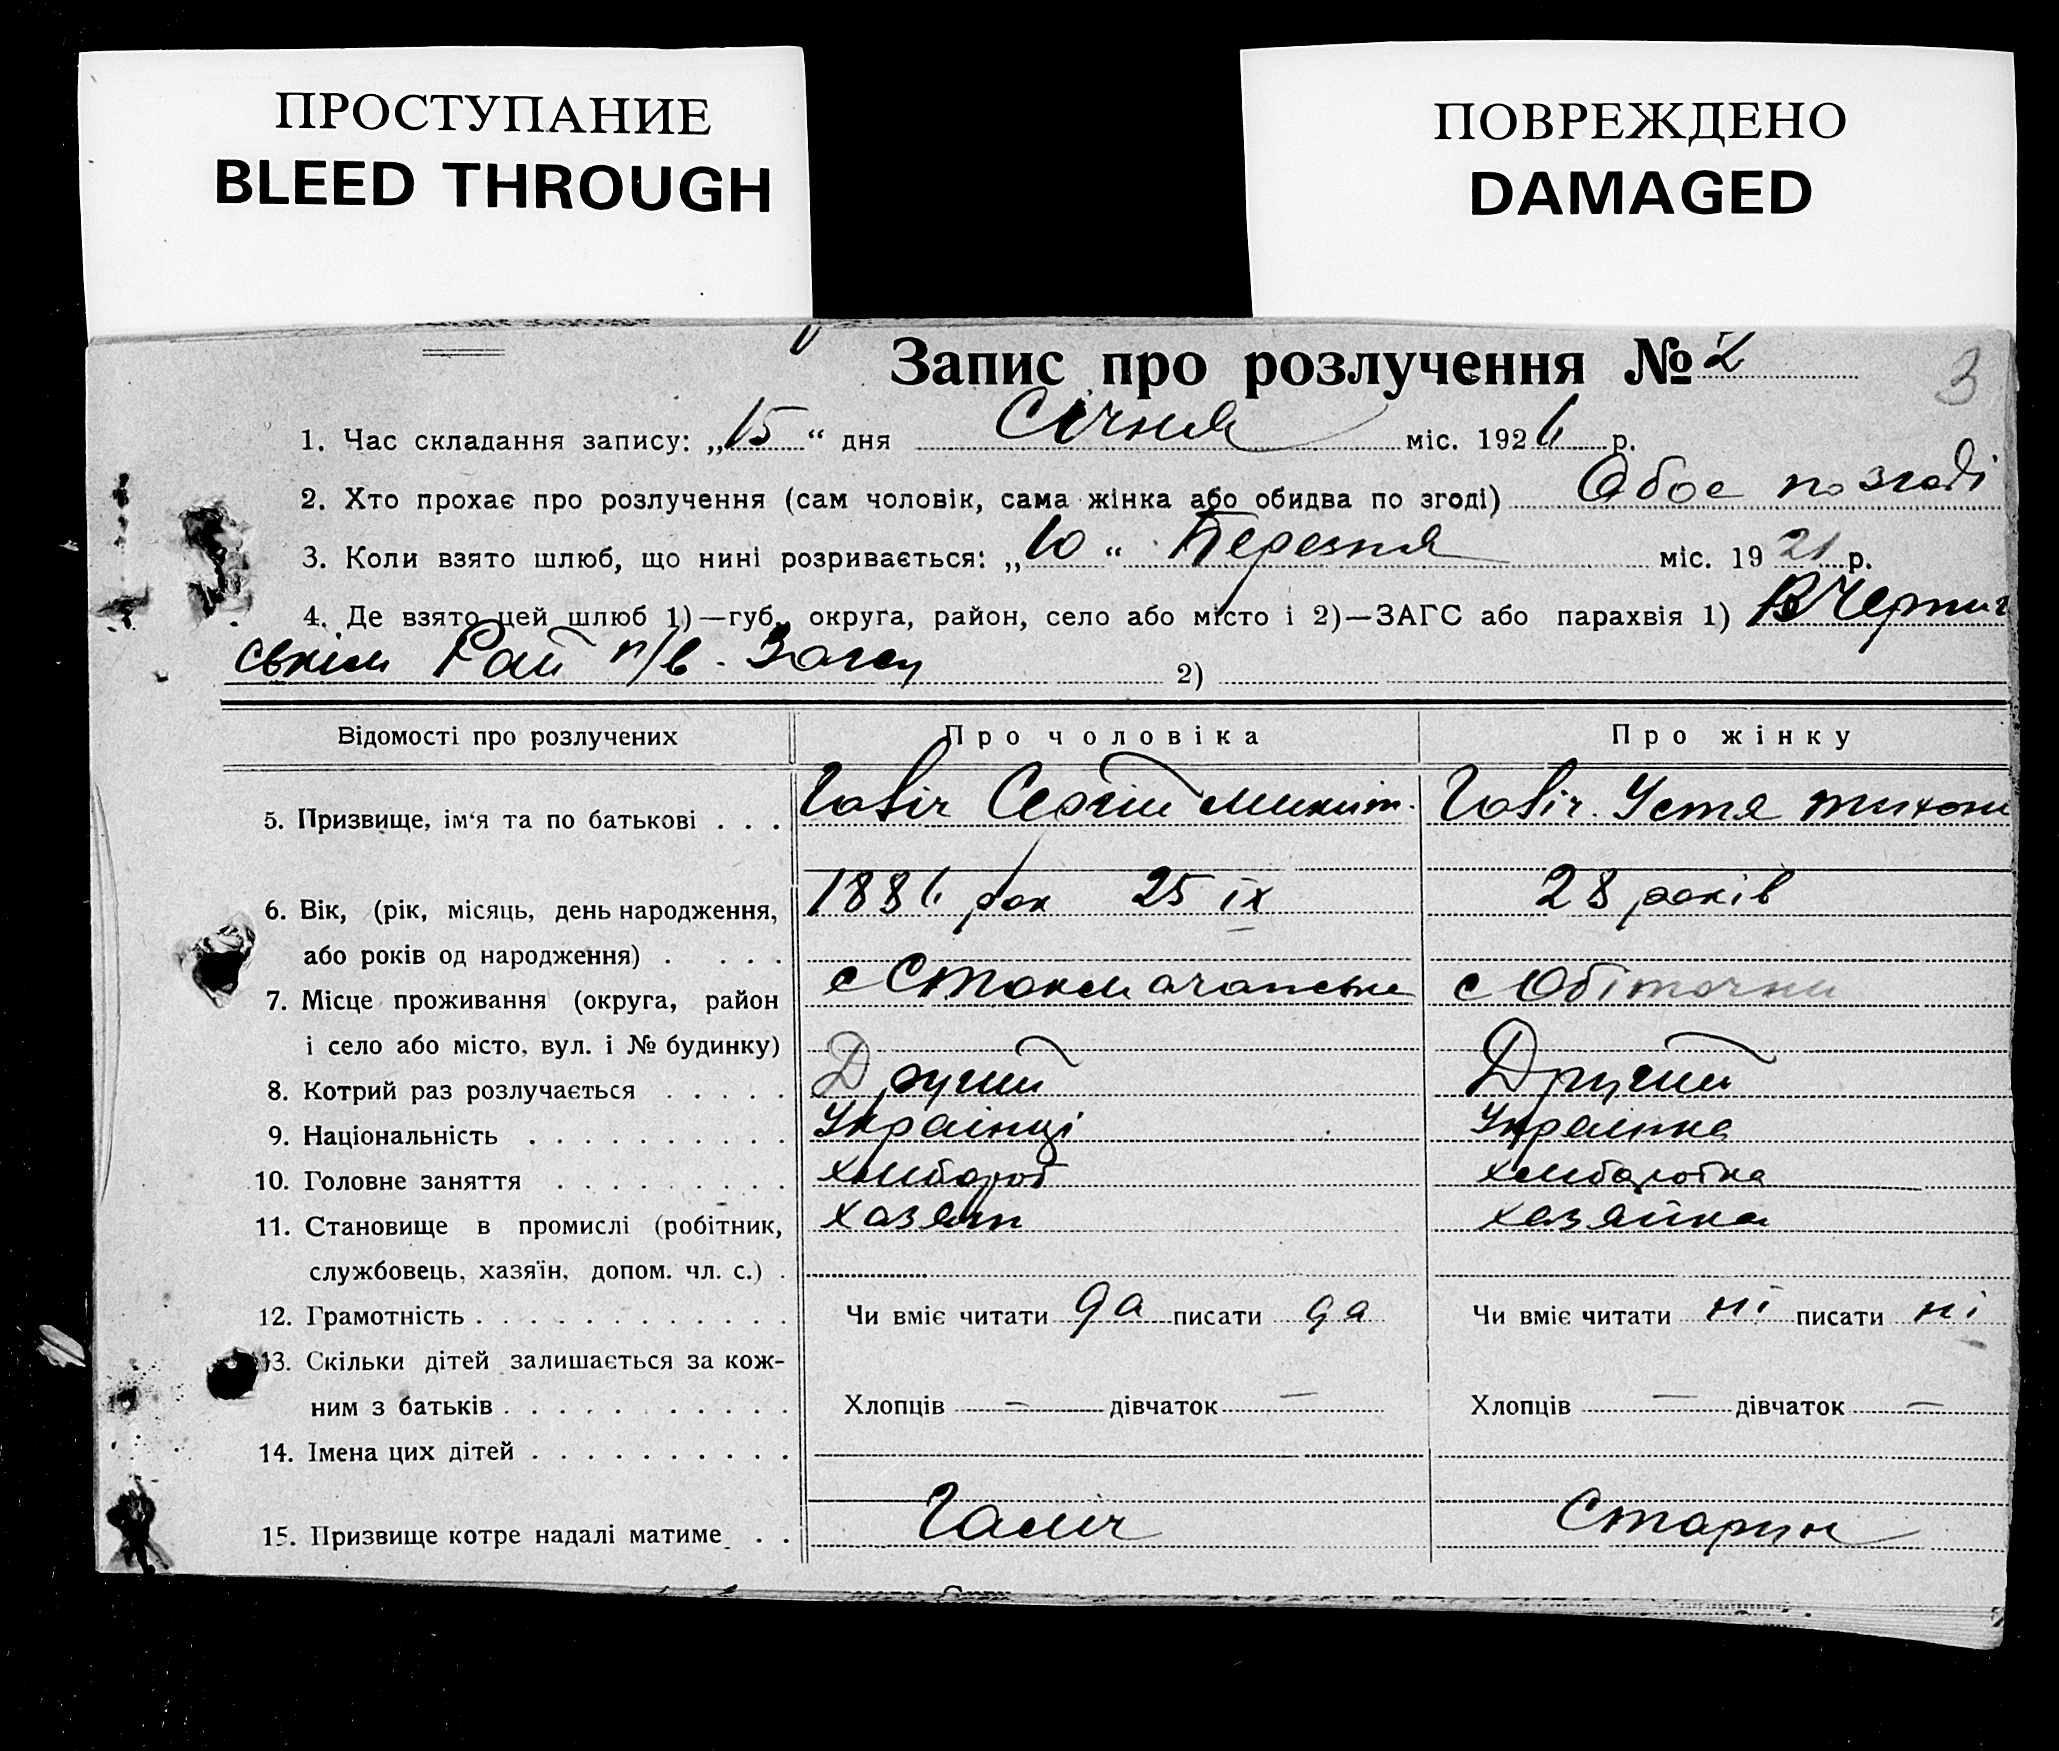 ПРОСТУПАНИЕ
BLEED THROUGH
ПОВРЕЖДЕНО
DAMAGED
Запис про розлучення № 2
3
1. Час складання запису: „15“ дня Січня міс. 1926 р.
2. Хто прохає про розлучення (сам чоловік, сама жінка або обидва по згоді) Обое по згоді
3. Коли взято шлюб, що нині розривається: „10“ Березня міс. 1921 р.
4. Де взято цей шлюб 1)—губ., округа, район, село або місто і 2)—ЗАГС або парахвія 1) В Черниг
ськім Рай п/в. Загсу 2)
Відомості про розлучених Про чоловіка Про жінку
5. Призвище, ім‘я та по батькові . . . Сергій Микит. Устя Тихон
6. Вік, (рік, місяць, день народження, 1886 рок 25 ІХ 28 років
або років од народження) . . . .
7. Місце проживання (округа, район с с Обіточни
і село або місто, вул. і № будинку)
8. Котрий раз розлучається . . . . . Другий Другий
9. Національність . . . . . . . . . . Українці Українка
10. Головне заняття . . . . . . . . . хлибороб хлиборобка
11. Становище в промислі (робітник, хазяин хазяйка
службовець, хазяїн, допом. чл. с.) .
12. Грамотність . . . . . . . . . . . . Чи вміє читати да писати да Чи вміє читати ні писати ні
13. Скільки дітей залишається за кож-
ним з батьків . . . . . . . . . . . Хлопців — дівчаток — Хлопців — дівчаток —
14. Імена цих дітей . . . . . . . . . .
15. Призвище котре надалі матиме . . Галіч Старун